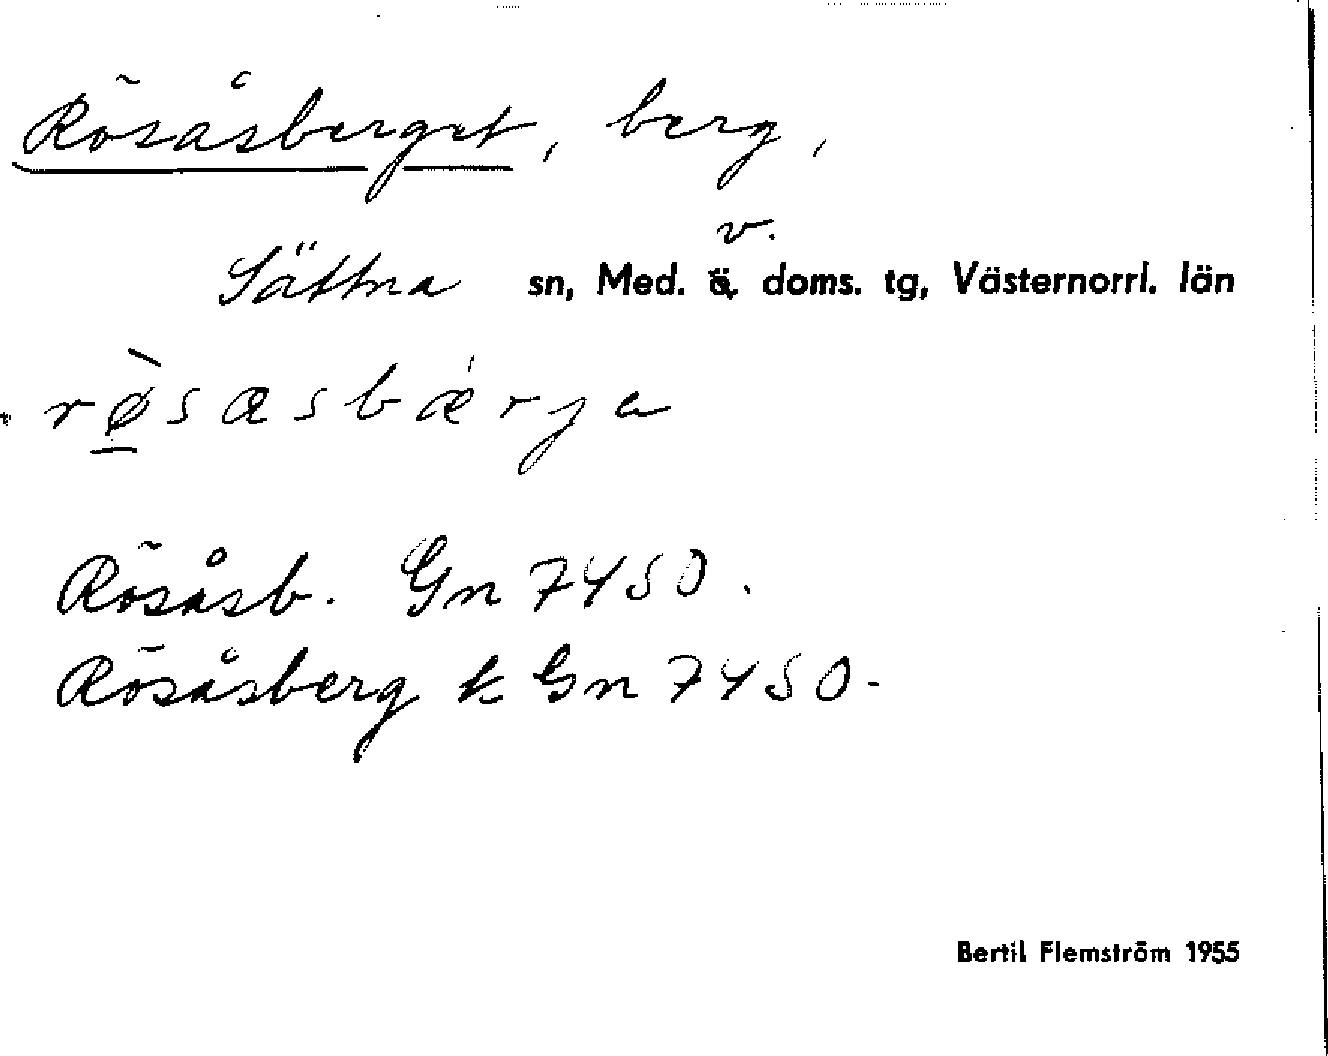 Rösåsberget, berg,
v.
Sättna sn, Med. ö. doms. tg, Västernorrl. län
rø̀sasbǽrja
Rösåsb. Gn 7450.
Rösåsberg k Gn 7450.
Bertil Flemström 1955